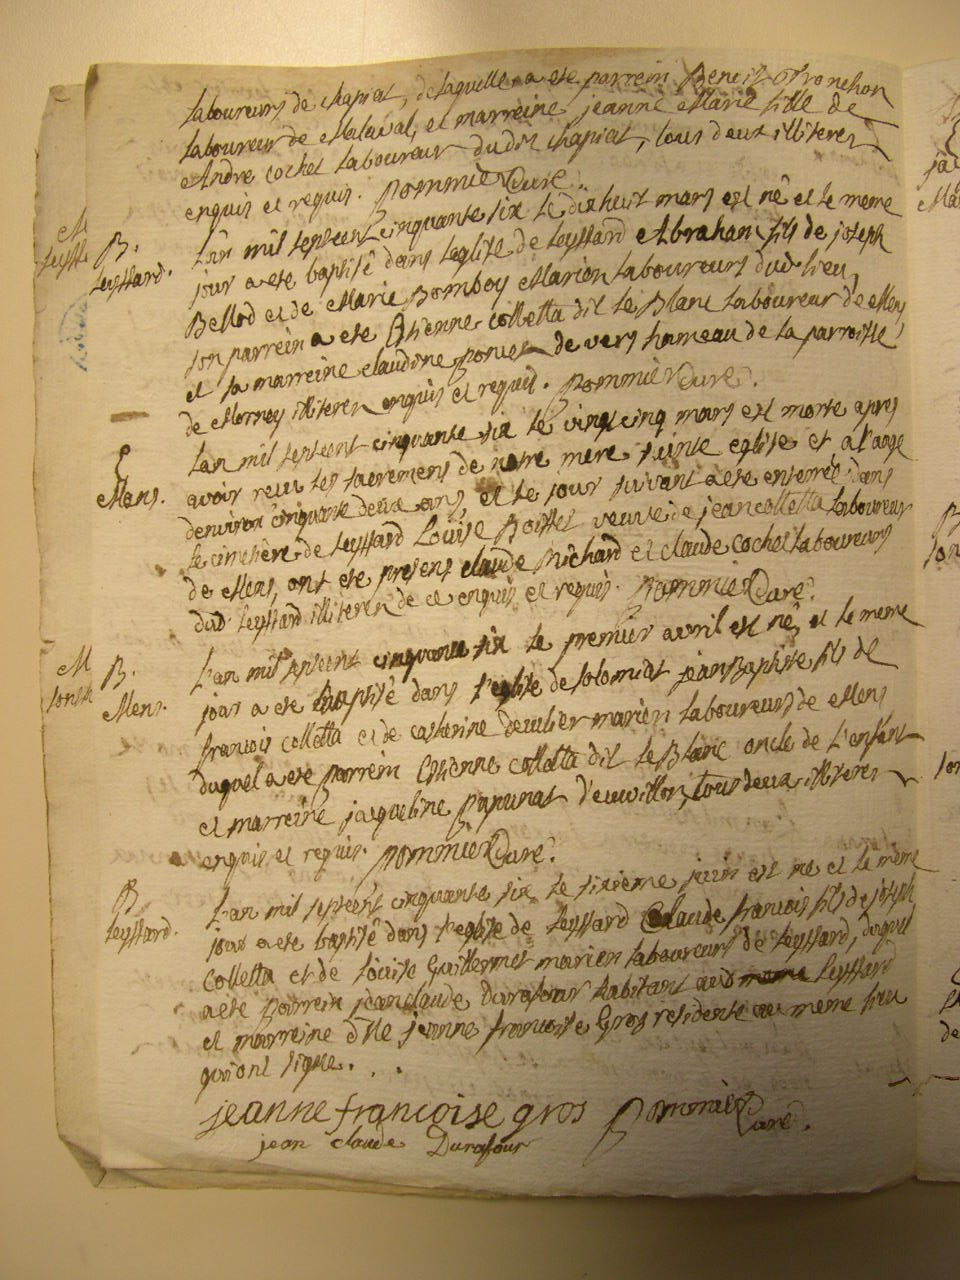 laboureurs de chapiat, de laquelle a ete parrein Benoit Tronchon
laboureur de Malaval, et marreine jeanne Marie fille de
Andre cochet laboureur dudit chapiat, tous deux illiteres
enquis et requis. Pommier Curé.
B.
Leyssard.
L'an mil septcent cinquante six le dixhuit mars est né et le meme
jour a ete baptisé dans leglise de Leyssard Abraham fils de joseph
Bellod et de Marie Bomboy Marion laboureurs dud lieu,
son parrein a ete Etienne colletta dit le Blanc laboureur de Mens,
et sa marreine claudine de vers hameau de la parroisse
de Mornay illiteres enquis et requis. Pommier Curé.
Mens.
Lan mil septcent cinquante six le vingtcinq mars est morte apres
avoir recu les sacremens de notre mere sainte eglise et a l'aage
denviron cinquante deux ans, et le jour suivant a ete enterrée dans
le cimetière de Leyssard Louise veuve de jean colletta laboureur
de Mens, ont ete presens claude Richard et claude cochet laboureurs
dud. Leyssard illiteres de ce enquis et requis. Pommier Curé.
M
B.
Mens.
L'an mil septcent cinquante six le premier avril est né, et le meme
jour a ete baptisé dans l'eglise de Solomiat jean Baptiste fils de
francois colletta et de catherine marien laboureurs de Mens
duquel a ete parrein Etienne colletta dit le Blanc oncle de l'enfant
et marreine jacqueline tous deux illiteres
enquis et requis. Pommier Curé.
B
Leyssard.
L'an mil septcent cinquante six le sixieme juin est né et le meme
jour a ete baptisé dans l'eglise de Leyssard Claude francois fils de joseph
Colletta et de Louise Guillermet marien laboureurs de Leyssard, duquel
a ete parrein jean claude durafour habitant aud Leyssard
et marreine dlle jeanne francoise Gros residente au meme lieu
qui ont signe. . .
jeanne francoise gros Pommier Curé.
jean claude Durafour